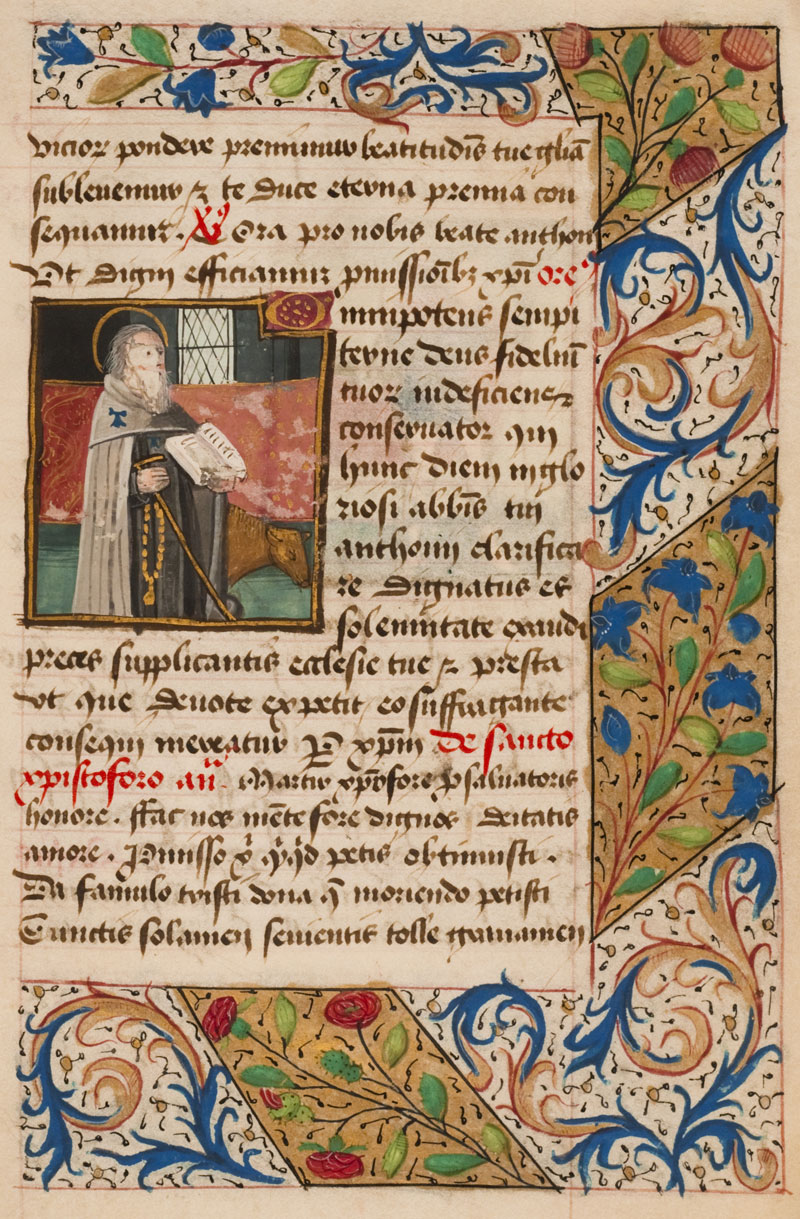 vicior pondere premimur beatitudīs tue gl̄iā
sublevemur ⁊ te duce eterna premia con
sequamur. Ora pro nobis beate anthon
Ut digni efficiamur p̄missioībꝫ xp̄i ore
mnipotens sempi
terne deus fideliū
tuoꝝ indeficiens
conservator qui
hunc diem inglo
riosi abbīs tui
anthonij clarifica
re dignatus es
solemnitate exaudi
preces supplicantis ecclesie tue ⁊ presta
ut que devote expetit eo suffragante
consequi mereatur P xp̄m De sancto
xpistoforo an̄a. Martir xpōfore ꝓ salvatoris
honore. ffac nos mēte fore dignos deitatis
amore. Pmisso xp̄i q̄ petis obtinuisti.
Da famulo tristi dona q̄ moriendo petisti
Cunctis solamen sevientis tolle gravamen